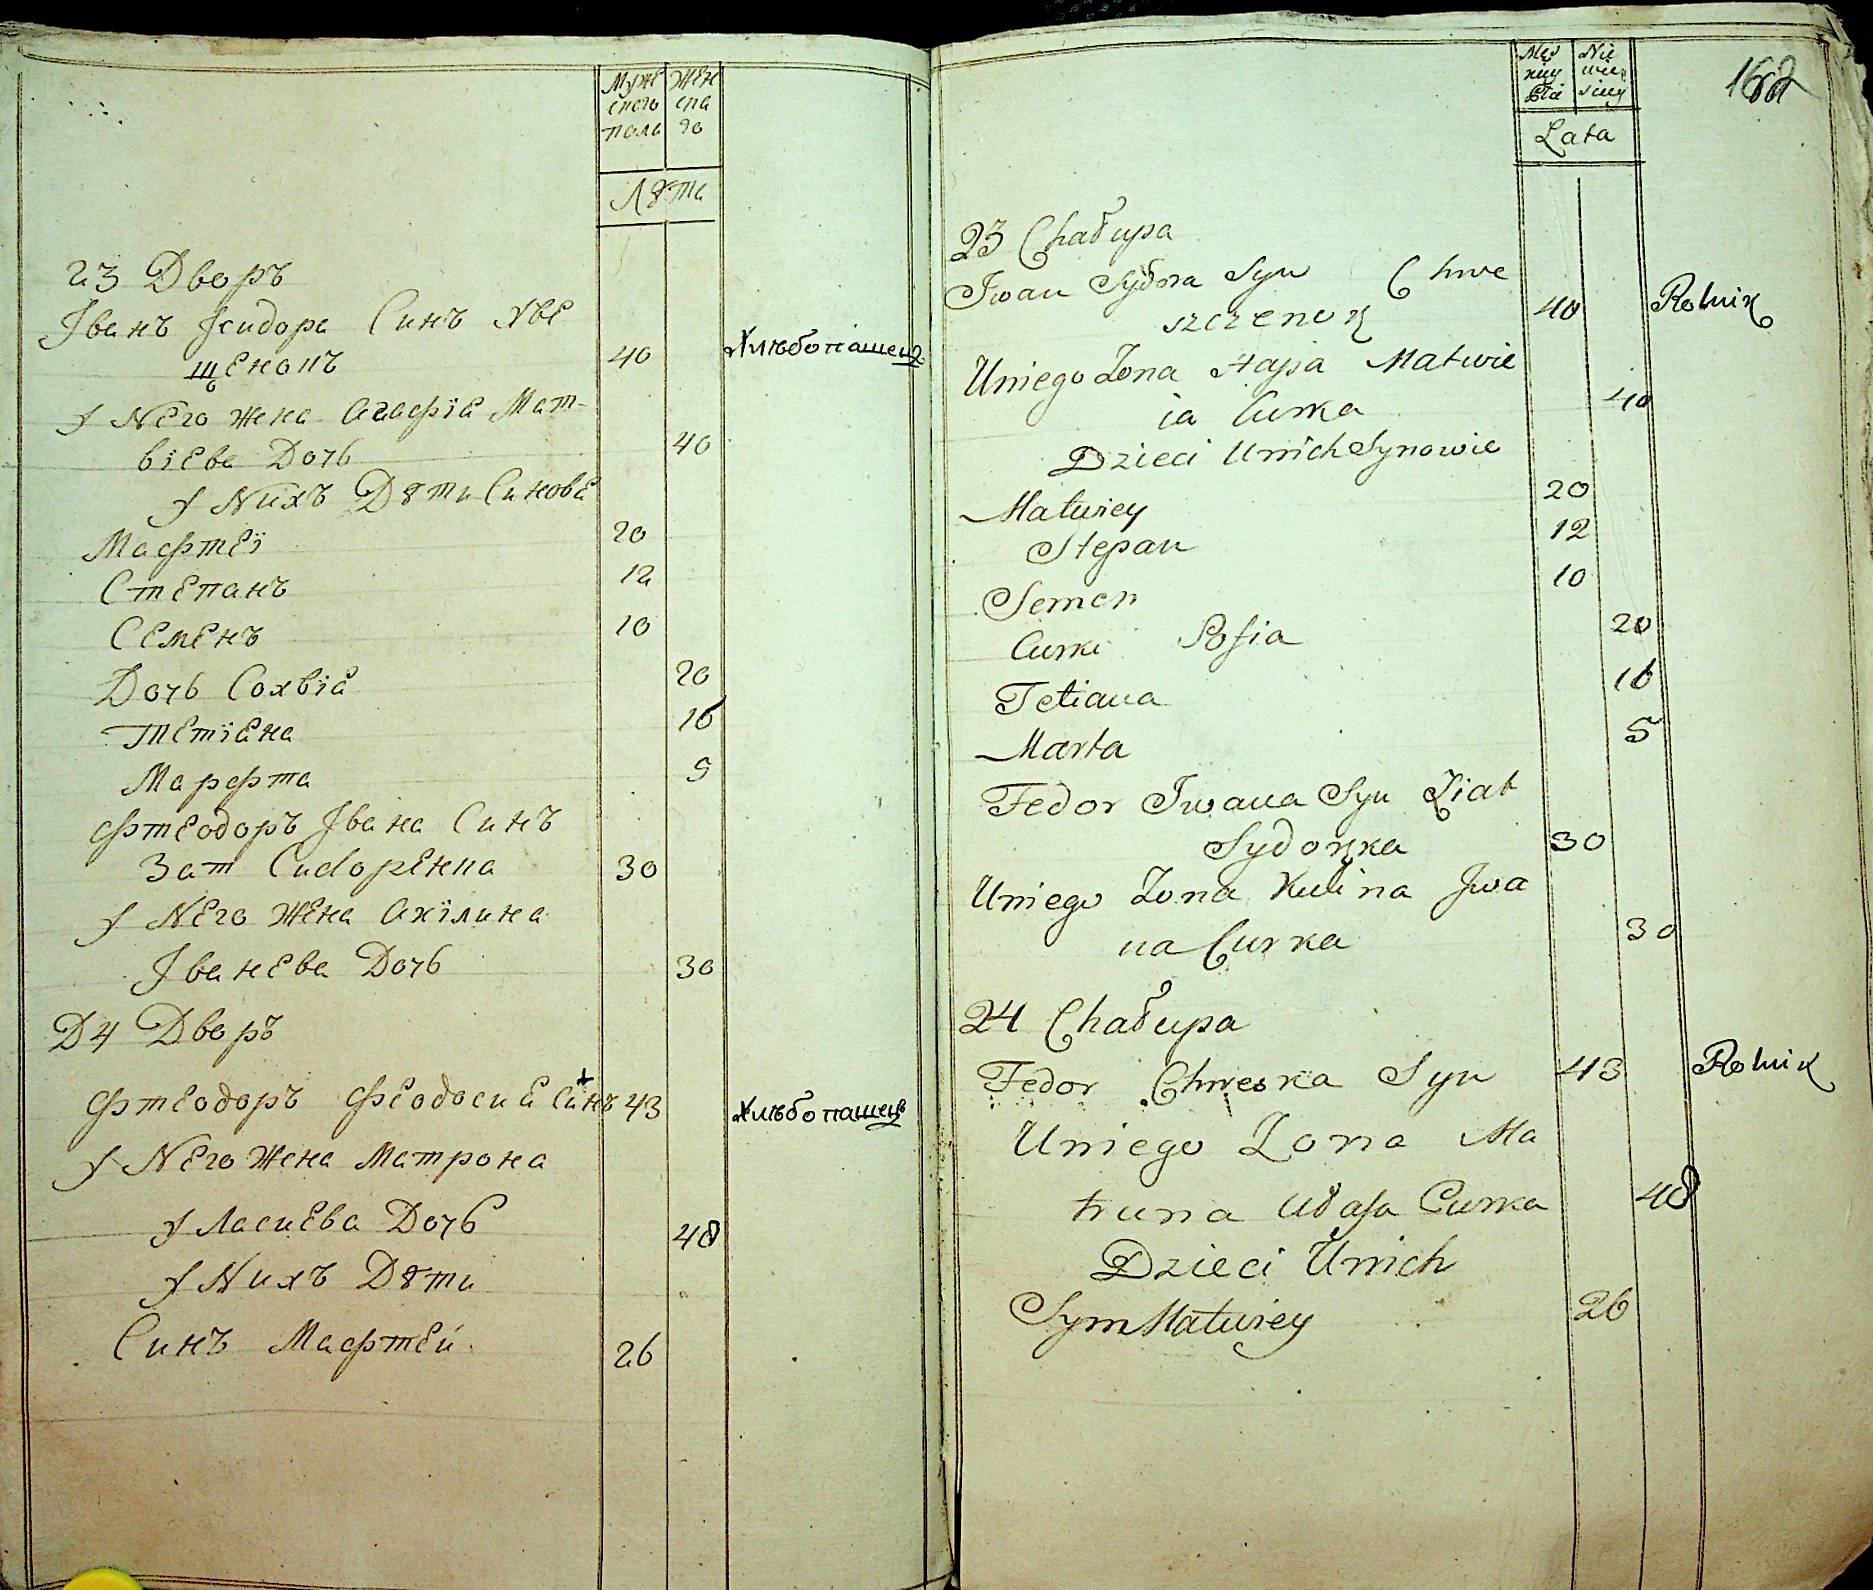 Муже
ского
полѣ
Жен
ска
го
Лѣта
23 Дворъ
Іванъ Ісидора Синъ Хве
щенокъ 40 Хлѣбопашецъ
у Него жена Агафіа Мат-
віева Дочь 40
у Нихъ Дѣти Синовѣ
Мафтеі 20
Степанъ 12
Семенъ 10
Дочь Сохвіа 20
Тетіана 16
Марфта 5
Фтеодоръ Івана Синъ
Зат Сидоренка 30
у Него Жена Акілина
Іванева Дочь 30
24 Дворъ
Фтеодоръ Феодосиа Синъ 43 Хлѣбопашецъ
у Него Жена Матрона
у Ласиева Дочь 48
у Нихъ Дѣти
Синъ Мафтеи 26
162
Męz
kiey
Płci
Nie
wie
sciey
Lata
23 Chałupa
Iwan Sydora Syn Chwe
szczenok 40 Rolnik
Uniego Zona Hapa Matwie
ia Curka 40
Dzieci Unich Synowie
Matwiey 20
Stepan 12
Semen 10
Curki Sofia 20
Tetiana 16
Marta 5
Fedor Iwana Syn Ziat
Sydorka 30
Uniego Zona Kulina Iwa
na Curka 30
24 Chałupa
Fedor Chweska Syn 43 Rolnik
Uniego Zona Ma
truna Curka 48
Dzieci Unich
Syn Matwiey 26